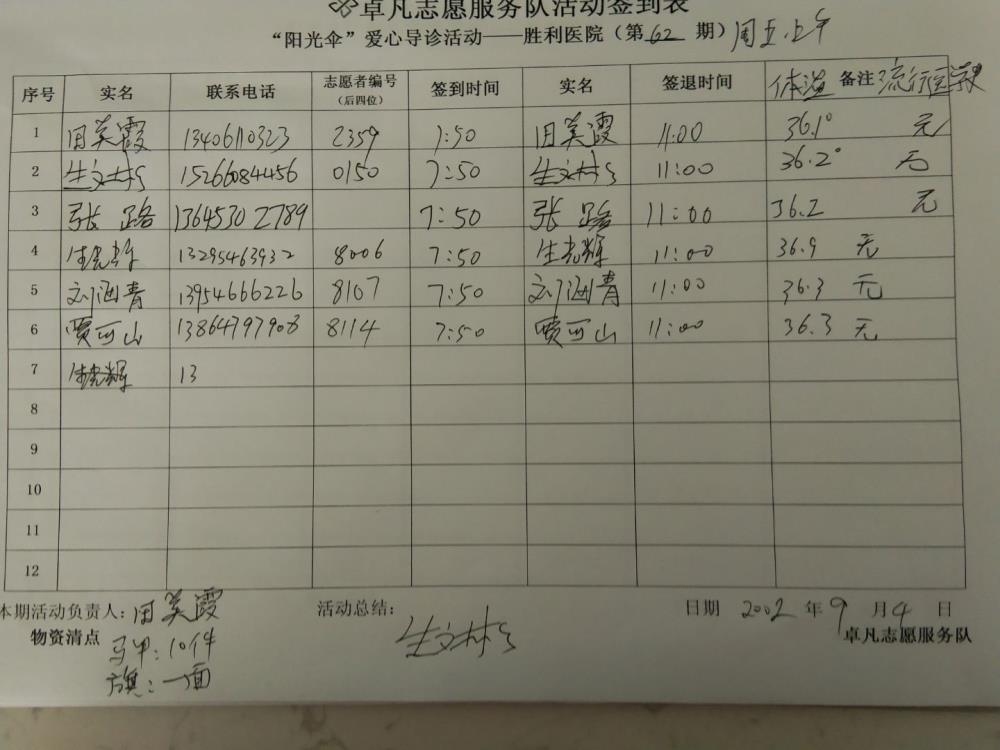 卓凡志愿服务队活动签到表
“阳光伞”爱心导诊活动——胜利医院（第 62 期）周五.上午
序号 实名 联系电话 志愿者编号（后四位） 签到时间 实名 签退时间 体温 备注 流行
1 田美霞 13406110323 2359 7:50 田美霞 11:00 36.1° 无
2 生文林 15266084456 0150 7:50 生文林 11:00 36.2° 无
3 张路 13645302789 7:50 张路 11:00 36.2 无
4 生光辉 13295463932 8006 7:50 生光辉 11:00 36.9 无
5 刘海青 13954666226 8107 7:50 刘海青 11:00 36.3 无
6 贾可山 13864797908 8114 7:50 贾可山 11:00 36.3 无
7 生光辉 13
8
9
10
11
12
本期活动负责人：田美霞 活动总结： 日期 2002 年 9 月 4 日
物资清点 马甲：10件 生文林 卓凡志愿服务队
旗：一面